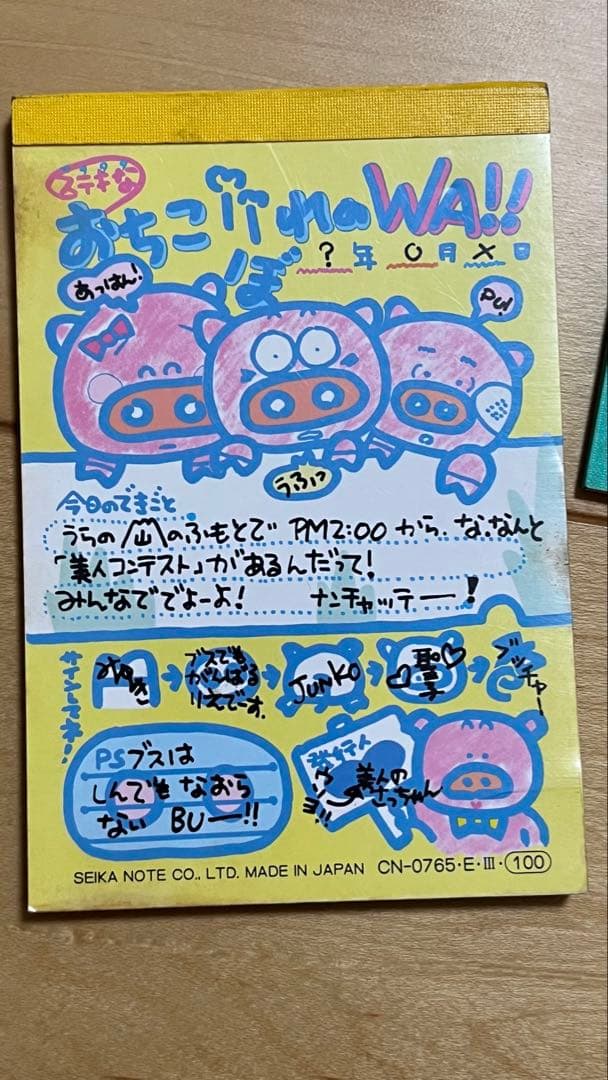 ステキな
おちこぼれのWA!!
?年 ○月 ×日
あっはん!
PU!
うふっ
今日のできごと
うらの山のふもとで PM2:00 から、な、なんと
「美人コンテスト」があるんだって!
みんなででよーよ! ナンチャッテー!
サインしてネ!
みゆき
ブスでも
がんばる
りえでーす。
JUNKO
聖子
ブッチャー
PS ブスは
しんでもなおら
ない BUー!!
発行人
美人の
さっちゃん
ヨ!!
SEIKA NOTE CO., LTD. MADE IN JAPAN CN-0765・E・Ⅲ・100